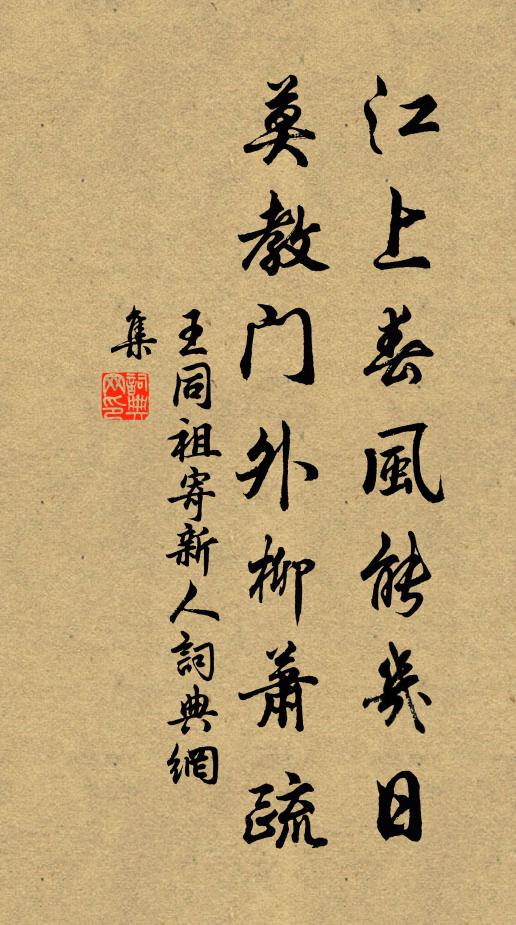 江上春風能幾日
莫教門外柳蕭疏
王同祖寄新人詞典網
集
詞典網印